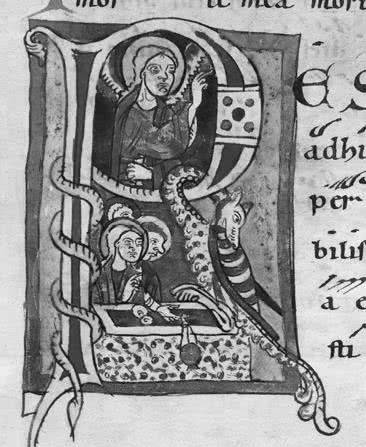 te mea mori
RES
adhu
per
bilis
a e
sti